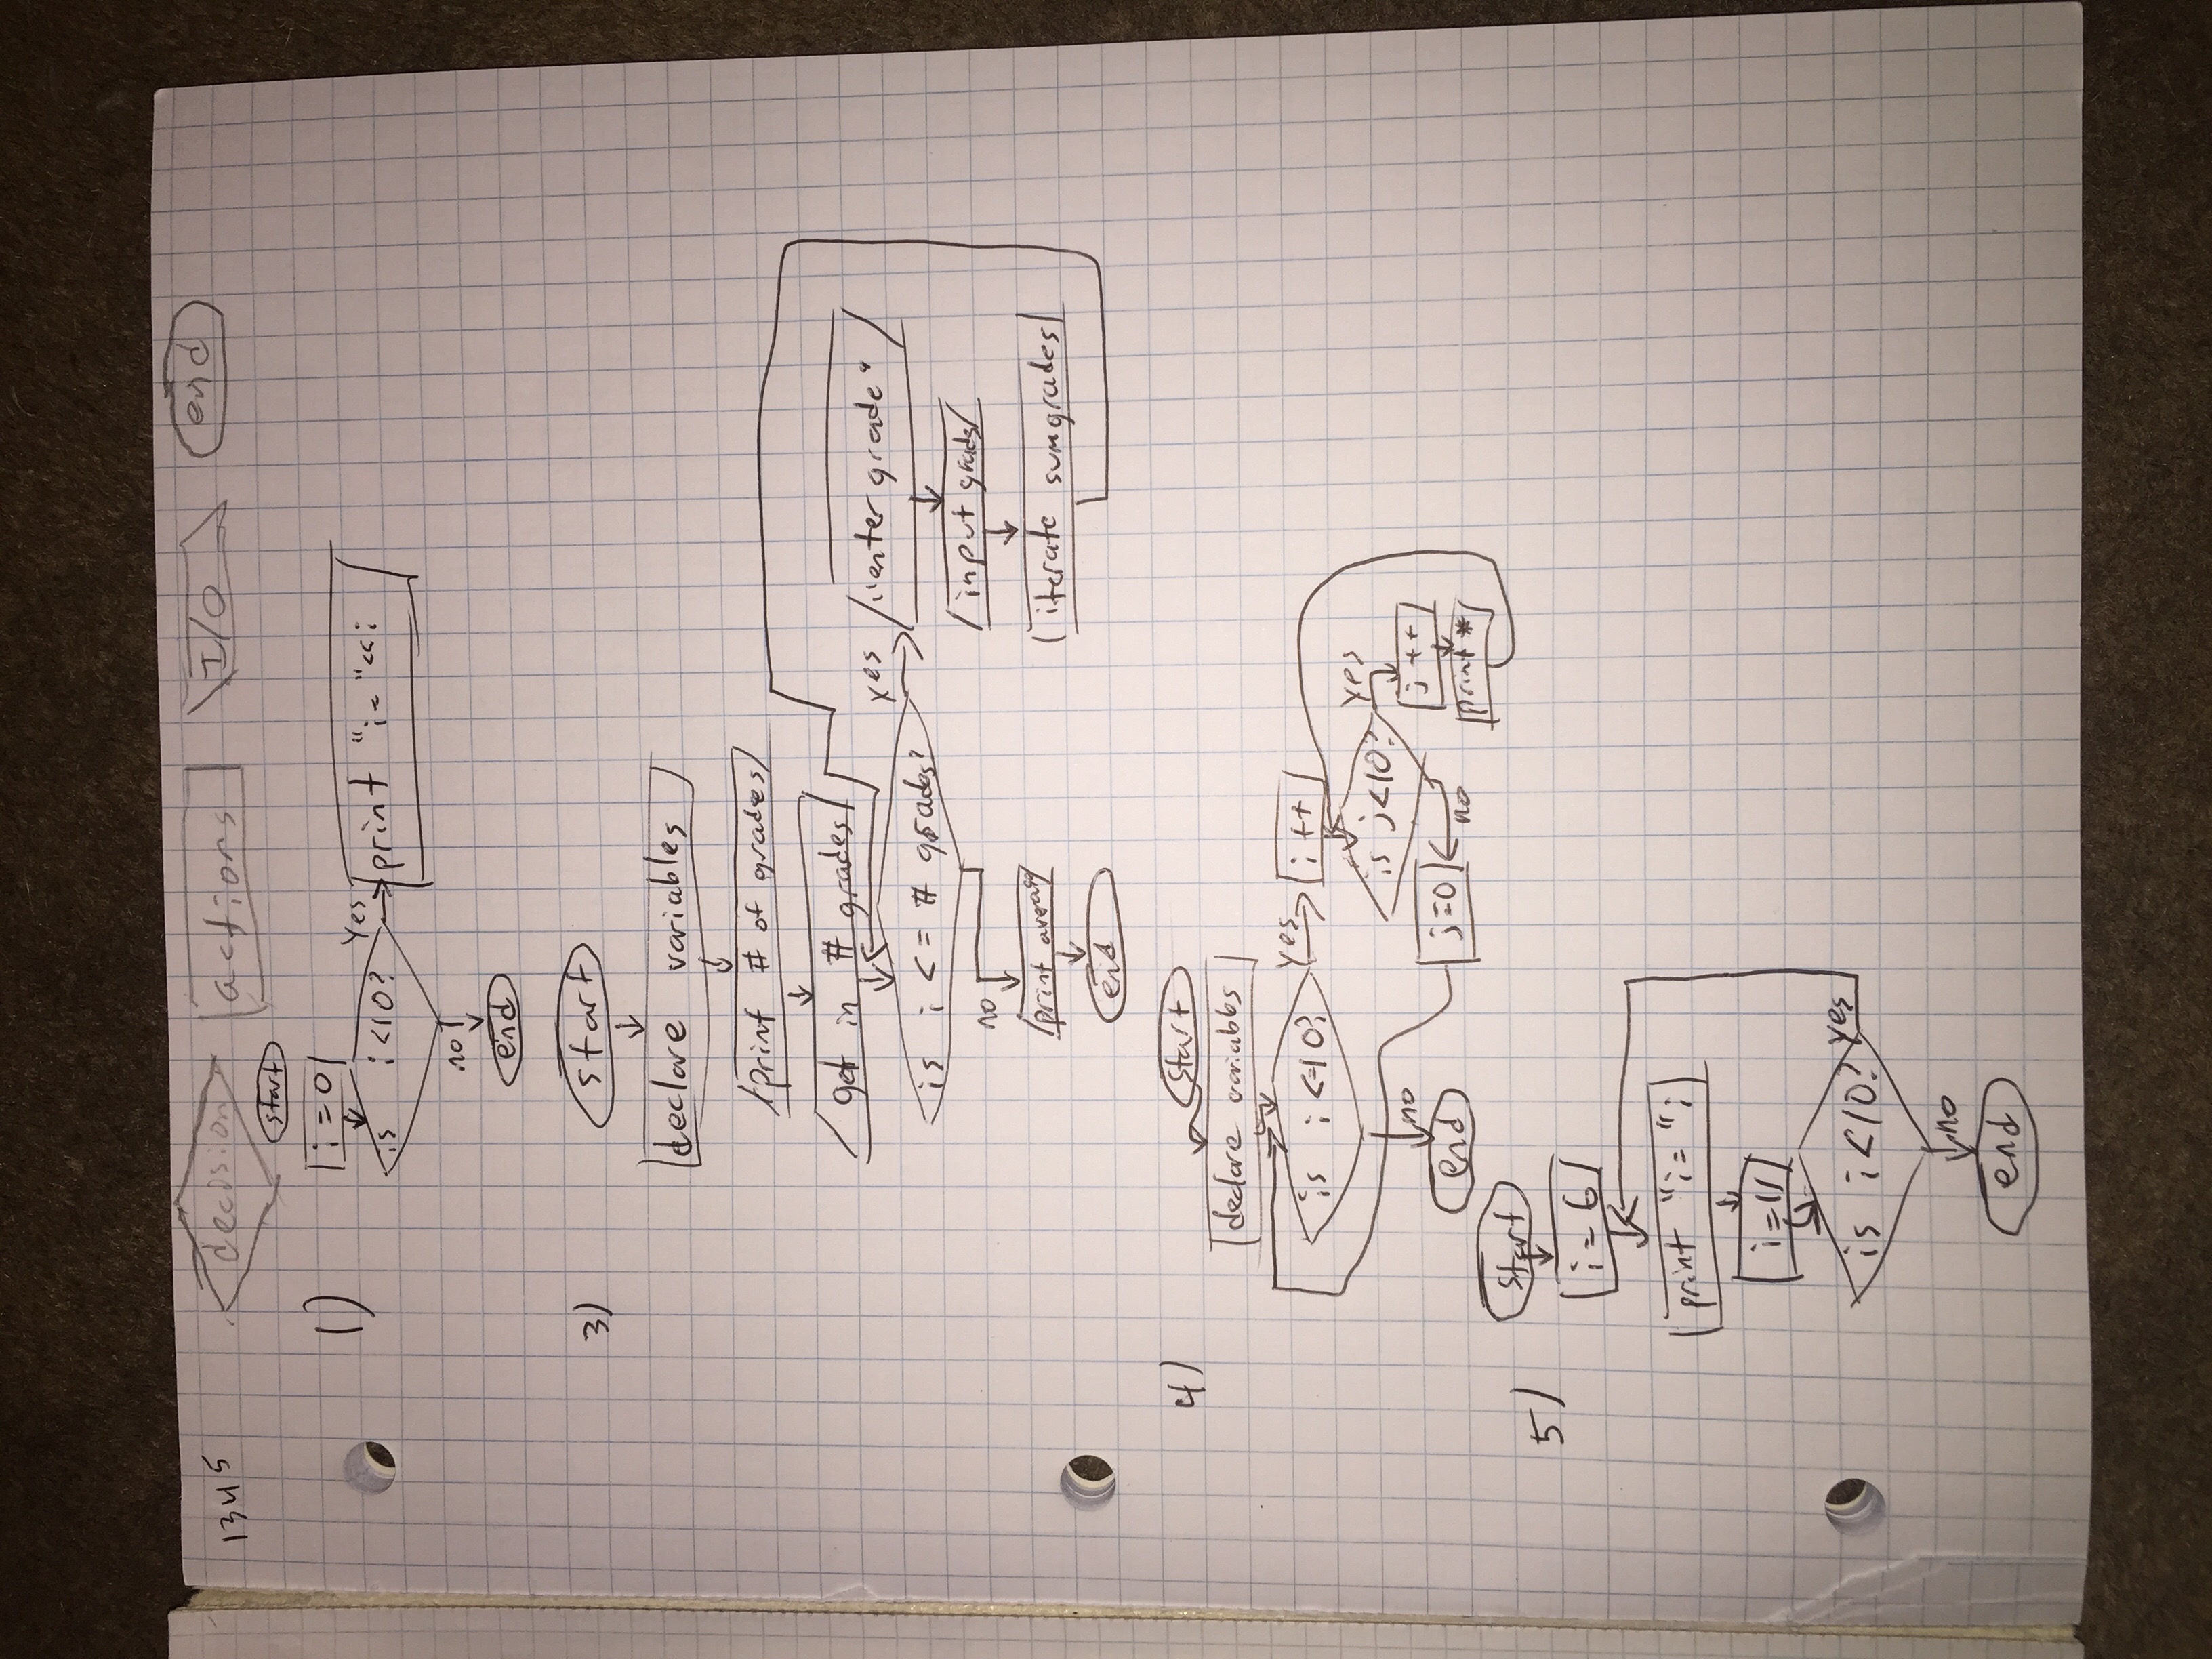 1345
decision actions I/O end
start
1) i=0
is i<10? yes print "i= "<<i
no
end
3) start
declare variables
print # of grades
get in # grades
is i <= # grades? yes "enter grade"
input grades
no
print average iterate sumgrades
end
4) start
declare variables
is i <=10? yes i ++
is j<10? yes
no j ++
end j=0 no print *
start
5)
i=6
print "i= "i
i=11
is i<10? yes
no
end